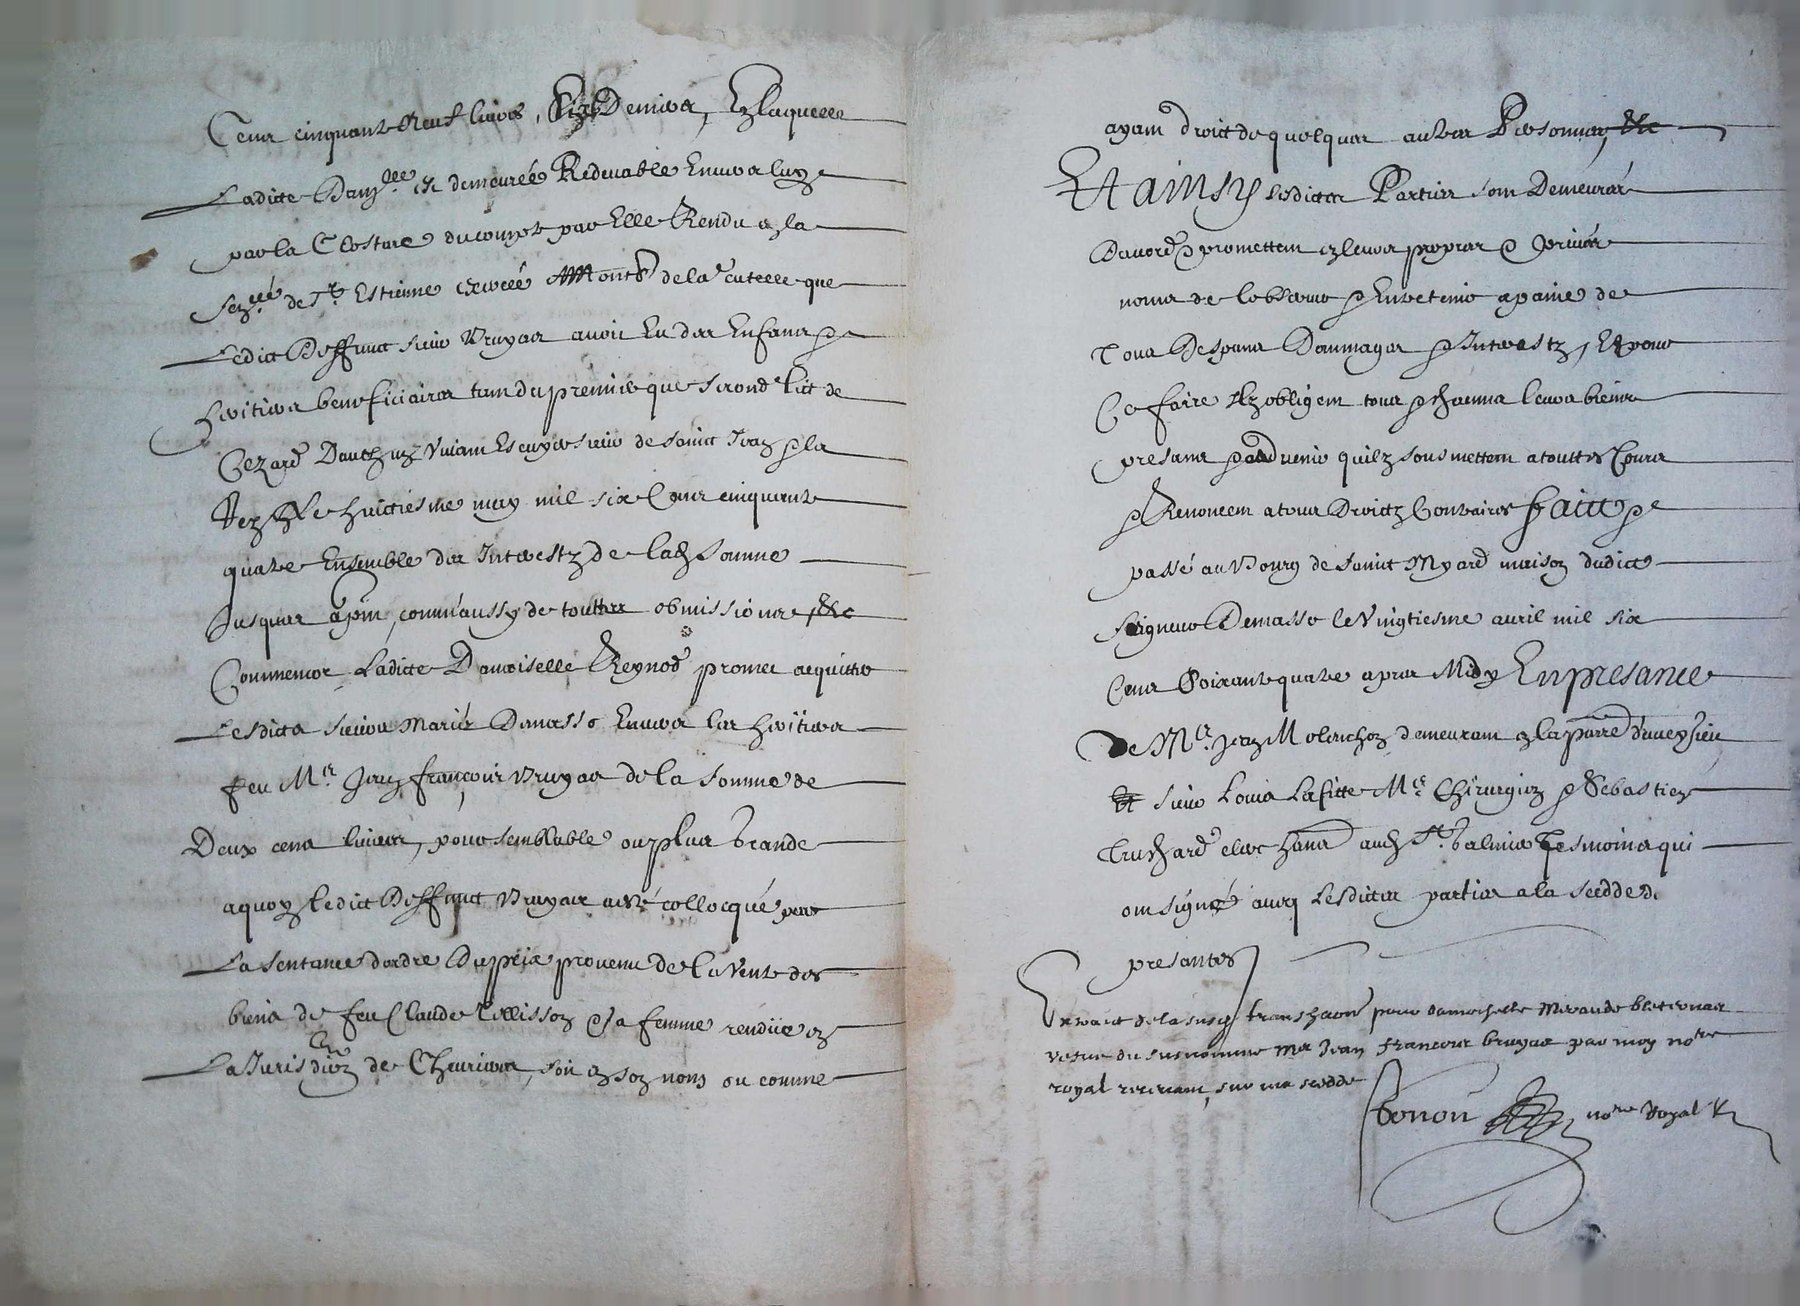 Cens cinquante Neuf livres, Six Deniers, En laquelle
Ladicte Dam.lle est demeurée Redevable Envers luy
par la Closture du compte par Elle Rendu en la
de St. Estienne de la Tutelle que
Ledict Deffunct sieur Bruyas avoit Eu des Enfans &
heritiers beneficiaires tant du premier que second Lict de
Cezard Dauthun Vivant Escuyer sieur de Sainct Jean & la
Le huictiesme may mil six Cens cinquante
quatre Ensemble des Interestz de lad. Somme
Jusques , comm'aussy de touttes obmissions &c
Comm'encor Ladicte Damoiselle Reynod promet acquitter
Lesdicts sieurs Mariés Damasse Envers les heritiers
feu Mr. Jean françois Bruyas de la Somme de
Deux cens livres, pour semblable ou plus Grande
a quoy Ledict Deffunct Bruyas a esté collocqué par
La Sentance d'ordre du prix provenu de la Vente des
biens de feu Claude Pellisson & sa femme rendüe en
La Jurisdiction de Chevrieres, soit en son nom ou comme
ayant droict de quelques autres Personnes, &c
Et ainsy lesdictes Parties sont Demeurées
D'accord & promettent en leurs propres & privés
noms de l'observer & Entretenir a paine de
Tous Despans Dommages & Interestz, Et pour
Ce faire Ilz obligent tous & chacuns leurs biens
presans & advenir quilz sousmettent a touttes Cours
& Renoncent a tous Droictz Contraires faict &
passé au Bourg de Sainct Myard maison dudict
Seigneur Damasse le Vingtiesme avril mil six
Cens Soixante quatre apres Midy En presance
de Mr. Jean Molinchon demeurant en la parre d'aveysieu
sieur Louis Lafitte Me. Chirurgien & Sebastien
Truchard and. St. Galmier Tesmoins qui
ont signé avecq Lesdictes parties a la scedde de
presantes
Extraict de la susd. transaction pour damoiselle Meraude
vefve du susnomme Me Jean francois bruyas par moy notre
royal recevant, sur ma scedde
Tonon notre Royal